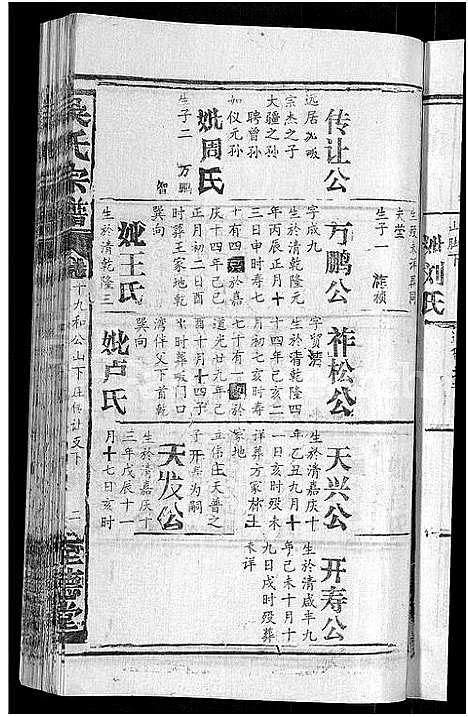 吴氏宗谱
卷十九和公山下庄传让支下
二
传让公
远居水畈
宗杰之子
大疆之孙
聘曾孙
如仪元孙
妣周氏
生子二 万鹏
智
生殁未详葬同
夫茔
生子一 祚祯
万鹏公
字成九
生於清乾隆元
年丙辰正月十
三日申时寿七
十有四殁於嘉
庆十四年己巳
正月初二日酉
时葬王家地乾
巽向
妣王氏
生於清乾隆三
祚松公
生於清乾隆四
十四年己亥二
月初七亥时寿
七十有一殁於
道光廿九年己
酉十月十四子
时葬畈门口
湾伴父下首乾
巽向
妣卢氏
天兴公
生於清嘉庆十
年乙丑九月十
一日亥时殁未
详葬方家林土
家地
立伍庄天普之
子开寿为嗣
天发公
生於清嘉庆十
三年戊辰十一
月十七日亥时
开寿公
生於清咸丰九
年己未十月十
九日戌时殁葬
未详
山脚下
妣刘氏